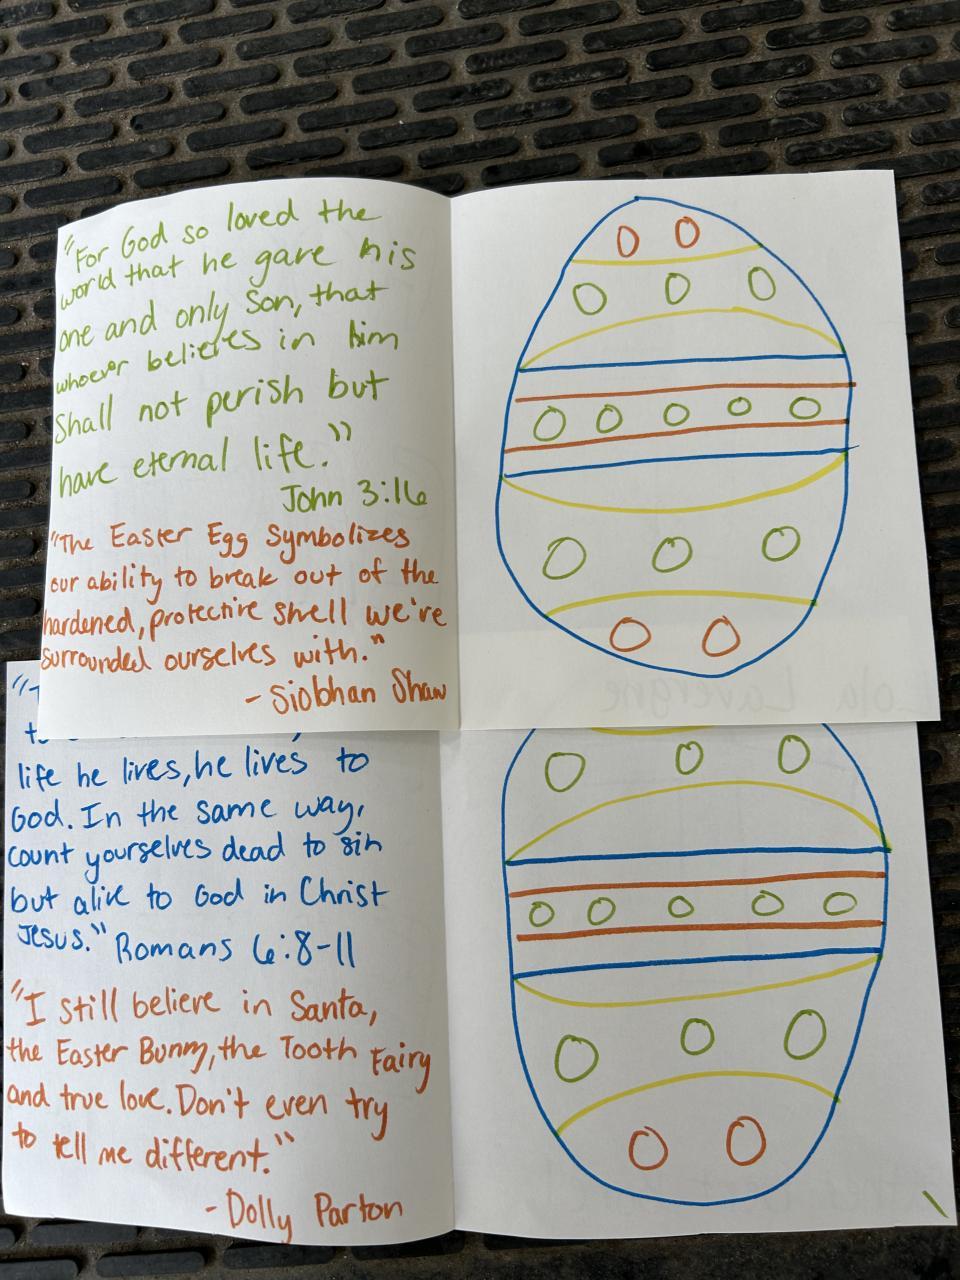 "For God so loved the
world that he gave his
one and only Son, that
whoever believes in him
Shall not perish but
have eternal life."
John 3:16
"The Easter Egg Symbolizes
our ability to break out of the
hardened, protective shell we're
surrounded ourselves with."
- Siobhan Shaw
life he lives, he lives to
God. In the same way,
count yourselves dead to sin
but alive to God in Christ
Jesus." Romans 6:8-11
"I still believe in Santa,
the Easter Bunny, the Tooth Fairy
and true love. Don't even try
to tell me different."
- Dolly Parton
Lola Lavergne